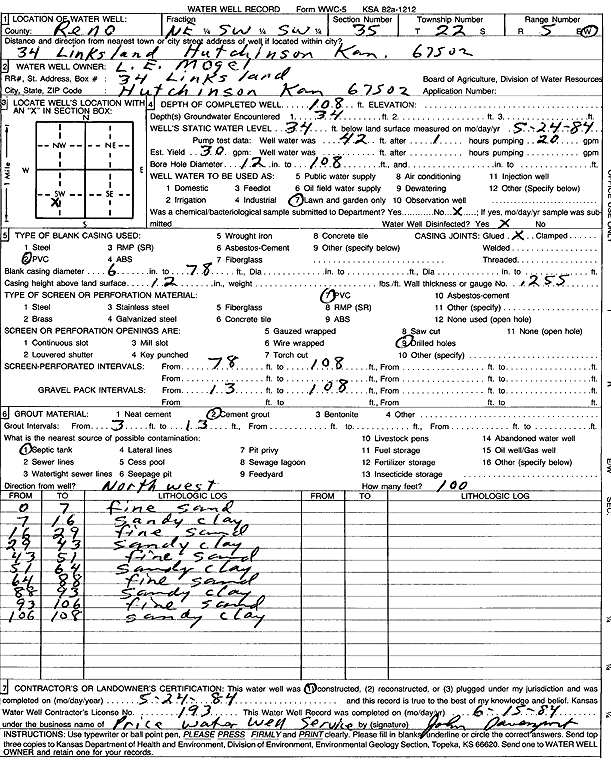 WATER WELL RECORD Form WWC-5 KSA 82a-1212
1 LOCATION OF WATER WELL: Fraction Section Number Township Number Range Number
County: Reno NE ¼ SW ¼ SW ¼ 35 T 22 S R 5 E/W
Distance and direction from nearest town or city street address of well if located within city?
34 Linksland Hutchinson Kan. 67502
2 WATER WELL OWNER: L. E. Mogel
RR#, St. Address, Box # : 34 Linksland Board of Agriculture, Division of Water Resources
City, State, ZIP Code : Hutchinson Kan 67502 Application Number:
3 LOCATE WELL'S LOCATION WITH AN "X" IN SECTION BOX:
N
NW NE
W E
SW SE
X
S
1 Mile
4 DEPTH OF COMPLETED WELL 108 ft. ELEVATION:
Depth(s) Groundwater Encountered 1. 34 ft. 2. ft. 3. ft.
WELL'S STATIC WATER LEVEL 34 ft. below land surface measured on mo/day/yr 5-24-84
Pump test data: Well water was 42 ft. after 1 hours pumping 20 gpm
Est. Yield 30 gpm: Well water was ft. after hours pumping gpm
Bore Hole Diameter 12 in. to 108 ft., and in. to ft.
WELL WATER TO BE USED AS: 5 Public water supply 8 Air conditioning 11 Injection well
1 Domestic 3 Feedlot 6 Oil field water supply 9 Dewatering 12 Other (Specify below)
2 Irrigation 4 Industrial 7 Lawn and garden only 10 Observation well
Was a chemical/bacteriological sample submitted to Department? Yes No X ; If yes, mo/day/yr sample was submitted
Water Well Disinfected? Yes X No
5 TYPE OF BLANK CASING USED: 5 Wrought iron 8 Concrete tile CASING JOINTS: Glued X Clamped
1 Steel 3 RMP (SR) 6 Asbestos-Cement 9 Other (specify below) Welded
2 PVC 4 ABS 7 Fiberglass Threaded
Blank casing diameter 6 in. to 78 ft., Dia in. to ft., Dia in. to ft.
Casing height above land surface 12 in., weight lbs./ft. Wall thickness or gauge No. .255
TYPE OF SCREEN OR PERFORATION MATERIAL: 7 PVC 10 Asbestos-cement
1 Steel 3 Stainless steel 5 Fiberglass 8 RMP (SR) 11 Other (specify)
2 Brass 4 Galvanized steel 6 Concrete tile 9 ABS 12 None used (open hole)
SCREEN OR PERFORATION OPENINGS ARE: 5 Gauzed wrapped 8 Saw cut 11 None (open hole)
1 Continuous slot 3 Mill slot 6 Wire wrapped 9 Drilled holes
2 Louvered shutter 4 Key punched 7 Torch cut 10 Other (specify)
SCREEN-PERFORATED INTERVALS: From 78 ft. to 108 ft., From ft. to ft.
From ft. to ft., From ft. to ft.
GRAVEL PACK INTERVALS: From 13 ft. to 108 ft., From ft. to ft.
From ft. to ft., From ft. to ft.
6 GROUT MATERIAL: 1 Neat cement 2 Cement grout 3 Bentonite 4 Other
Grout Intervals: From 3 ft. to 13 ft., From ft. to ft., From ft. to ft.
What is the nearest source of possible contamination: 10 Livestock pens 14 Abandoned water well
1 Septic tank 4 Lateral lines 7 Pit privy 11 Fuel storage 15 Oil well/Gas well
2 Sewer lines 5 Cess pool 8 Sewage lagoon 12 Fertilizer storage 16 Other (specify below)
3 Watertight sewer lines 6 Seepage pit 9 Feedyard 13 Insecticide storage
Direction from well? North west How many feet? 100
FROM TO LITHOLOGIC LOG FROM TO LITHOLOGIC LOG
0 7 fine sand
7 16 sandy clay
16 29 fine sand
29 43 sandy clay
43 51 fine sand
51 64 sandy clay
64 88 fine sand
88 93 sandy clay
93 106 fine sand
106 108 sandy clay
7 CONTRACTOR'S OR LANDOWNER'S CERTIFICATION: This water well was (1) constructed, (2) reconstructed, or (3) plugged under my jurisdiction and was
completed on (mo/day/year) 5-24-84 and this record is true to the best of my knowledge and belief. Kansas
Water Well Contractor's License No. 193 This Water Well Record was completed on (mo/day/yr) 6-15-84
under the business name of Price Water Well Service by (signature) John Davenport
INSTRUCTIONS: Use typewriter or ball point pen, PLEASE PRESS FIRMLY and PRINT clearly. Please fill in blanks, underline or circle the correct answers. Send top
three copies to Kansas Department of Health and Environment, Division of Environment, Environmental Geology Section, Topeka, KS 66620. Send one to WATER WELL
OWNER and retain one for your records.
OFFICE USE ONLY
T
R
E/W
SEC.
¼
¼
¼